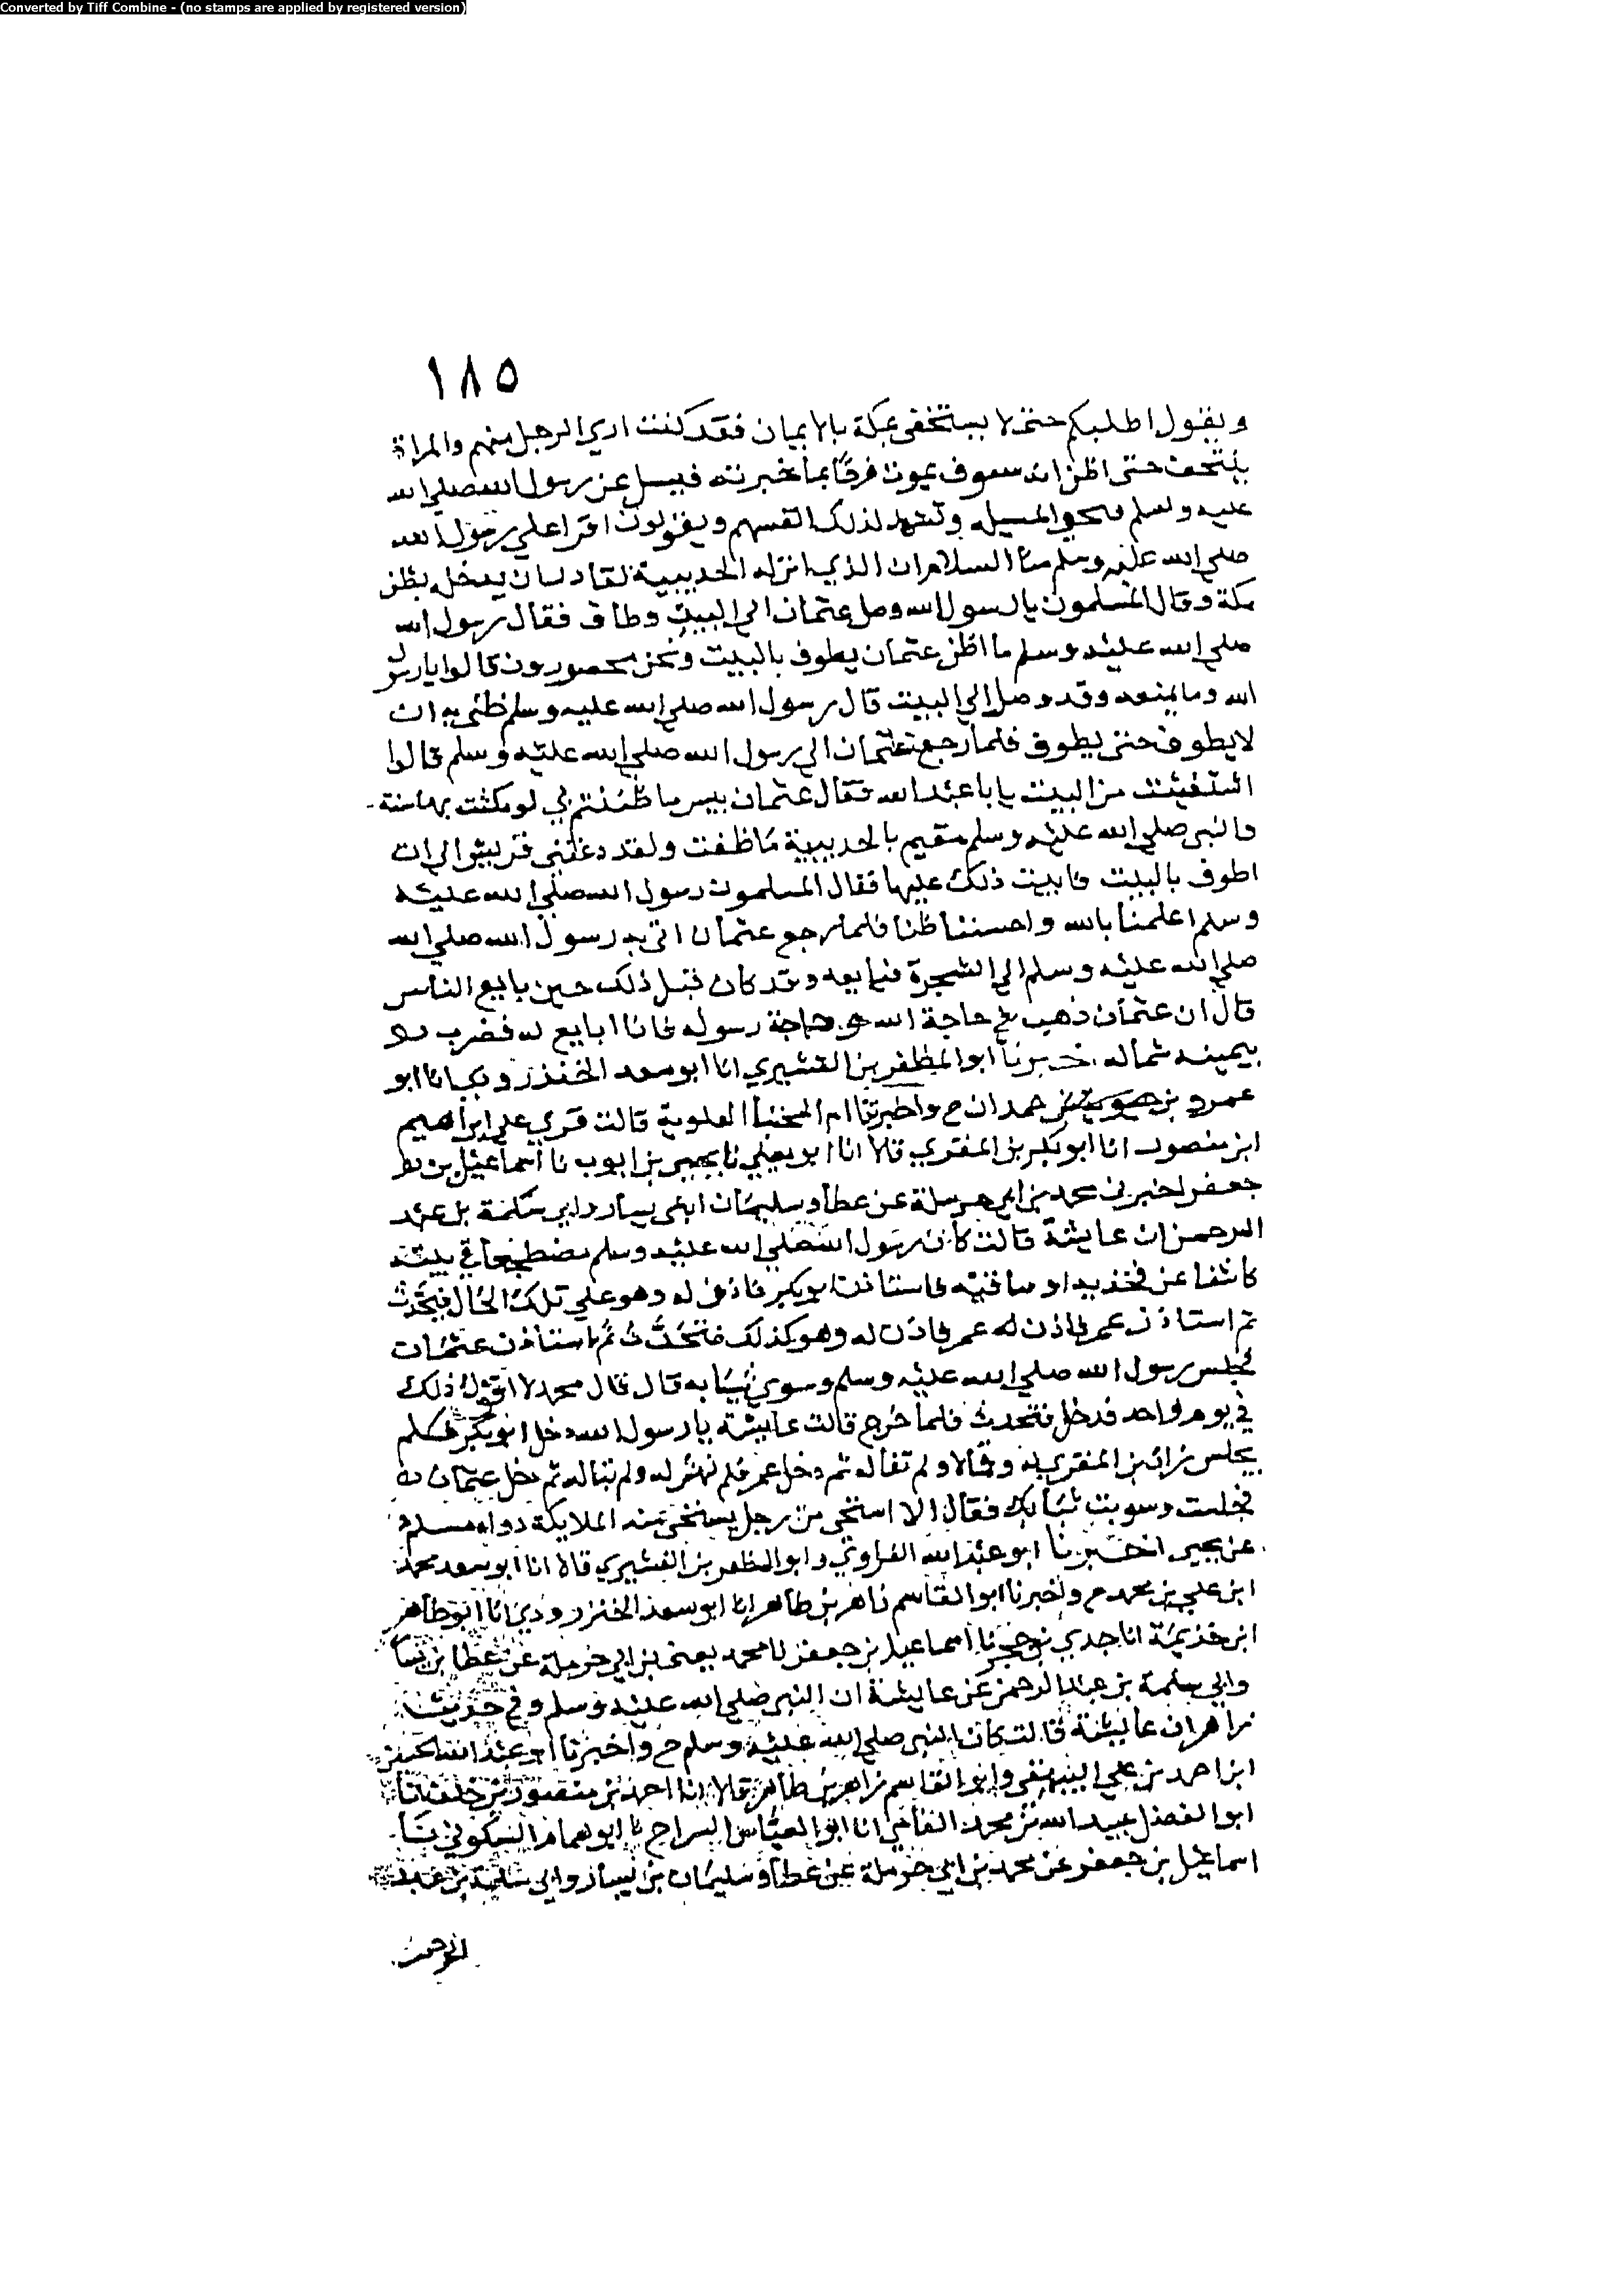 Converted by Tiff Combine - (no stamps are applied by registered version)
١٨٥
ويقول اطلبكم حتى لا يستخفى بمكة بالايمان فقد كنت ارى الرجل منهم والمراة
ينتحب حتى اظن انه سوف يموت فرحا بما خبرته فيسل عن رسول الله صلى الله
عليه وسلم المسيلة وتشهد لذلك انفسهم ويقولون اقرا على رسول الله
صلى الله عليه وسلم منا السلام ان الذي انزله الحديبية لقادر ان يدخله بطن
مكة وقال المسلمون يا رسول الله وصل عثمان الى البيت وطاف فقال رسول الله
صلى الله عليه وسلم ما اظن عثمان يطوف بالبيت ونحن محصورون قالوا يا رسول
الله وما يمنعه وقد وصل الى البيت قال رسول الله صلى الله عليه وسلم ظني به ان
لا يطوف حتى يطوف فلما رجع عثمان الى رسول الله صلى الله عليه وسلم قالوا
اشتفيت من البيت يا با عبد الله فقال عثمان بيس ما ظننتم بي لو مكثت بها سنة
والنبي صلى الله عليه وسلم مقيم بالحديبية ما طفت ولقد دعتني قريش الى ان
اطوف بالبيت فابيت ذلك عليها فقال المسلمون رسول الله صلى الله عليه
وسلم اعلمنا بالله واحسننا ظنا فلما رجع عثمان اتى به رسول الله صلى الله
صلى الله عليه وسلم الى الشجرة فبايعه وقد كان قبل ذلك حين بايع الناس
قال ان عثمان ذهب في حاجة الله وحاجة رسوله فانا ابايع له فضرب
بيمينه شماله اخبرنا ابو المظفر بن القشيري انا ابو سعد الخنذرودي انا ابو
عمرو بن حمدان ح واخبرتنا ام المجتبا العلوية قالت قري على ابراهيم
ابن منصور انا ابو بكر بن المقري قالا انا ابو يعلي نا يحيى بن ايوب نا اسماعيل بن
جعفر اخبرني محمد بن ابي حرملة عن عطا وسليمان ابنى يسار وابي سلمة بن عبد
الرحمن ان عايشة قالت كان رسول الله صلى الله عليه وسلم مضطجعا في بيته
كاشفا عن فخذيه او ساقيه فاستاذن ابو بكر فاذن له وهو على تلك الحال فتحدث
ثم استاذن عمر فاذن له عمر فاذن له وهو كذلك فتحدث ثم استاذن عثمان
فجلس رسول الله صلى الله عليه وسلم وسوى ثيابه قال قال محمد لا اقول ذلك
في يوم واحد فدخل فتحدث فلما خرج قالت عايشة يا رسول الله دخل ابو بكر فلم
يجلس زاد بن المقري له وقالا ولم تفاله ثم دخل عمر فلم تهش له ولم تباله ثم دخل عثمان
فجلست وسويت ثيابك فقال الا استحى من رجل يستحى منه الملايكة رواه مسلم
عن يحيى اخبرنا ابو عبد الله الفراوي وابو المظفر بن القشيري قالا انا ابو سعد محمد
ابن علي بن محمد ح واخبرنا ابو القاسم زاهر بن طاهر انا ابو سعد الخنزرودي انا ابو طاهر
ابن خزيمة انا جدي نا بن حجر نا اسماعيل بن جعفر نا محمد يعني بن ابي حرملة عن عطا بن يسار
وابي سلمة بن عبد الرحمن عن عايشة ان النبي صلى الله عليه وسلم وفي حديث
زاهر ان عايشة قالت كان النبي صلى الله عليه وسلم ح واخبرنا ابو عبد الله الحسين
ابن احمد بن علي البيهقي وابو القاسم زاهر بن طاهر قالا انا احمد بن منصور بن خلف انا
ابو الفضل عبيد الله بن محمد الفامي انا ابو العباس السراج نا ابو همام السكوني نا
اسماعيل بن جعفر عن محمد بن ابي حرملة عن عطا وسليمان بن يسار وابي سلمة بن عبد
الرحمن